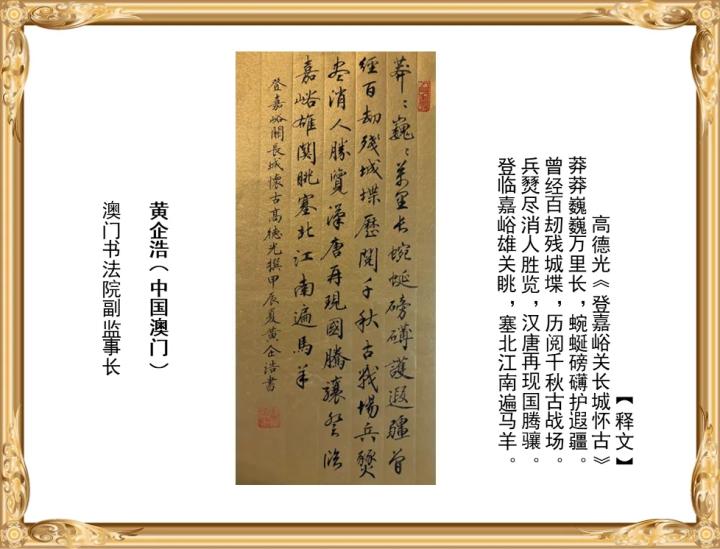 【释文】
高德光《登嘉峪关长城怀古》
莽莽巍巍万里长，蜿蜒磅礴护遐疆。
曾经百劫残城堞，历阅千秋古战场。
兵燹尽消人胜览，汉唐再现国腾骧。
登临嘉峪雄关眺，塞北江南遍马羊。
莽〻巍〻萬里长蜿蜒磅礴護遐疆曾
經百劫殘城堞歷閱千秋古戰場兵燹
尽消人勝覽漢唐再現國騰驤登临
嘉峪雄関眺塞北江南遍馬羊
登嘉峪關長城懷古高德光撰甲辰夏黄企浩書
黄企浩（中国澳门）
澳门书法院副监事长